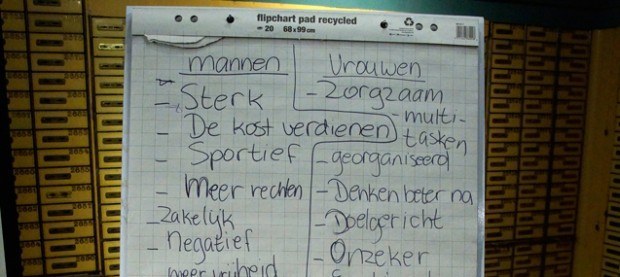 flipchart pad recycled
= 20 68x99cm
mannen
- Sterk
- De kost verdienen
- Sportief
- Meer rechten
- Zakelijk
- negatief
meer vrijheid
Vrouwen
- Zorgzaam
- multi-
tasken
- georganiseerd
- Denken beter na
- Doelgericht
- Onzeker